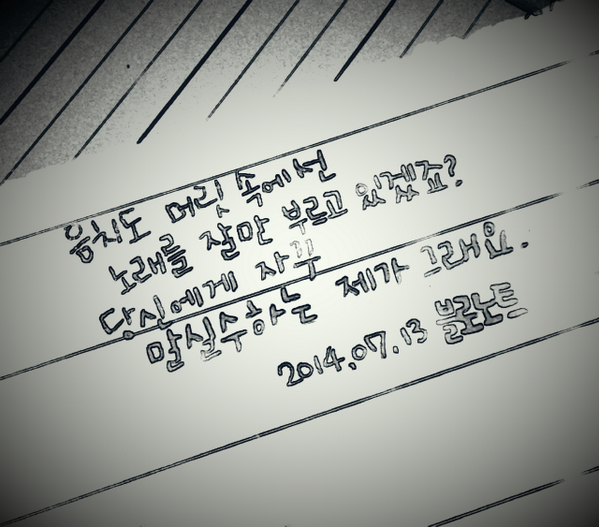 음치도 머릿 속에선
노래를 잘만 부르고 있겠죠?
당신에게 자꾸
말실수하는 제가 그래요.
2014.07.13 블로노트